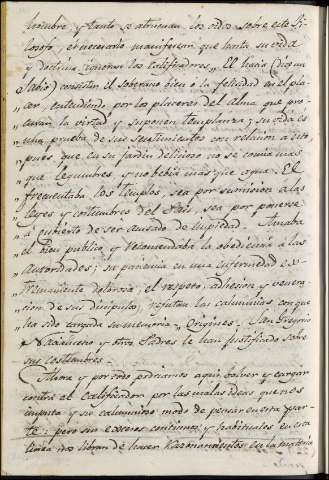 hombre, y tanto se atruenan los oidos sobre este Fi-
losofo, es necesario manifestar que hasta su vida
y doctrina ignoran los Calificadores. El hacia (dice un
Sabio) consistir el soberano bien ó la felicidad en el pla-
cer, entendiendo por los placeres del Alma que pro-
curan la virtud y suponen templanza; su vida es
una prueba de sus sentimientos con relacion á esto,
pues que en su jardin delicioso no se comia mas
que legumbres, y no bebia más que agua. El
frecuentaba los templos, sea por sumision á las
Leyes y costumbres del País, sea por ponerse
á cubierto de ser acusado de impiedad. Amaba
el bien publico, y recomendaba la obediencia á las
autoridades; su paciencia en una enfermedad ex-
tremamente dolorosa; el respeto, adhesion y venera-
cion de sus discipulos, refutan las calumnias con que
ha sido cargada su memoria. Origenes, San Gregorio
Nacianceno y otros Padres le han justificado sobre
sus costumbres.
Ahora y por todo podriamos aqui volver y cargar
contra el Calificador por las malas ideas que nos
imputa y su calumnioso modo de pensar en esta par-
te; pero sus excesos continuos y habituales en esta
linea nos libran de hacer razonamientos en la materia